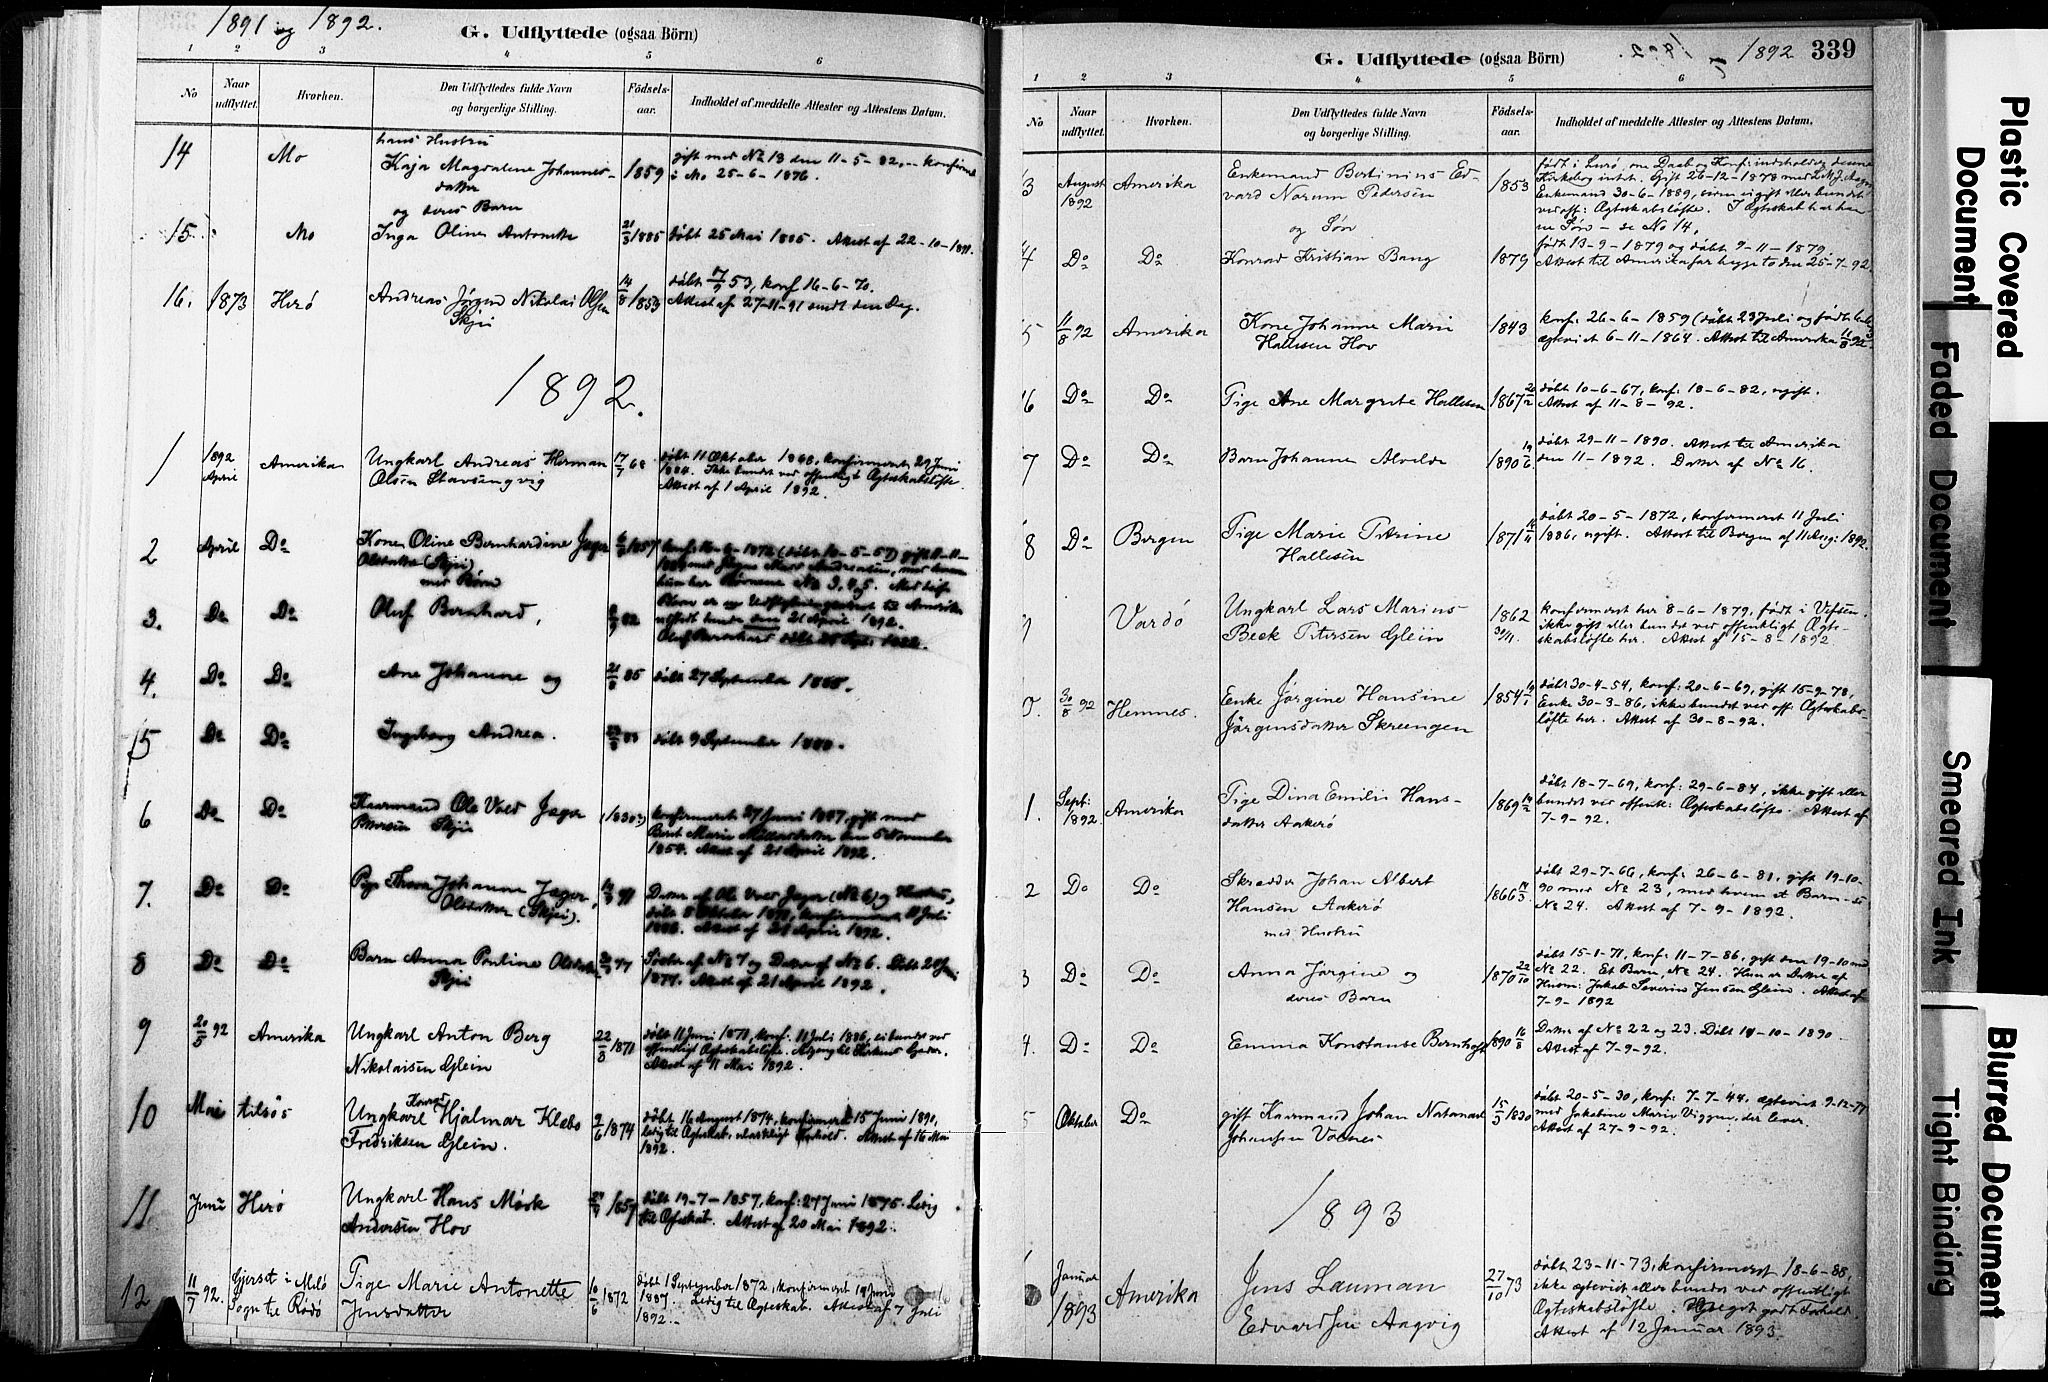 1891 og 1892.
G. Udflyttede (ogsaa Börn)
1 2 3 4 5 6
No
Naar udflyttet.
Hvorhen.
Den Udflyttedes fulde Navn og borgerlige Stilling.
Födsels-aar.
Indholdet af meddelte Attester og Attestens Datum.
hans Hustru
14 Mo Kaja Magdalene Johannes- 1859 gift med No 13 den 11-5-82, konfirmed
datter i Mo 25-6-1876.
og deres Barn
15 Mo Inga Oline Antonette 21/3 1885 døbt 25 Mai 1885. Attest af 22-10-1891.
16. 1873 Herö Andreas Jörgen Nikolai Olsen 14/8 1853 döbt 17/9 53, konf 16-6-70.
Skjei Attest af 27-11-91 sendt den Dag.
1892.
1 1892 April Amerika Ungkarl Andreas Herman 17/7 68 döbt 11 Oktober 1868, konfirmeret 29 Juni
Olsen Stavseng vig 1884. Ikke bundet ved offentligt Ægteskabsløfte.
Attest af 1 April 1892.
2 April Do Konen Oline Bernhardine Jæger 1857
Olsdatter (Skjei)
med Børn
3. Do Do Oluf Bernhard, 82
4. Do Do Ane Johanne og 21/8 85 döbt 27 September 1885.
5 Do Do Ingeborg Andrea. döbt 9 September 1888.
6 Do Do Kaarmand Ole Vold Jæger 1830 konfirmeret 27 Juni 1847, gift med
Petersen Skjei Berit Marie Möllersdatter den 5 November
1854. Attest af 21 April 1892.
7. Do Do Pige Thora Johanne Jæger 71 Datter af Ole Vold Jæger (No 6) og Hustru,
Olsdatter (Skjei). döbt 8 Oktober 1871, konfirmeret 11 Juli
1886. Attest af 21 April 1892.
8 Do Do Barn Anna Pauline Olsdatter 77 Søster af No 7 og Datter af No 6. Döbt
Skjei 1877. Attest af 21 April 1892.
9 20/5 92 Amerika Ungkarl Anton Berg 22/3 1871 döbt 11 Juni 1871, konf: 11 Juli 1886, ei bundet ved
Nikolaisen Glein offentligt Ægteskabsløfte.
Attest af 11 Mai 1892.
10 Mai Ungkarl Konrad Hjalmar Klæbo 2/6 1874 döbt 16 August 1874, konfirmeret 15 Juni 1890,
Fredriksen Glein. ledig til Ægteskab, Attest af 16 Mai
1892.
11 Juni Herö Ungkarl Hans Mörk 1857 döbt 19-7-1857, konf: 27 Juni 1875. Ledig
Andersen Hov til Ægteskab. Attest af 20 Mai 1892.
12 11/7 92. Gjerset i Melö Pige Marie Antonette 10/6 1872 döbt 1 September 1872, konfirmeret 19 Juni
Sogn til Rödö Jensdatter 1887. Ledig til Ægteskab. Attest af 7 Juli
1892.
1892 339
G. Udflyttede (ogsaa Börn)
1 2 3 4 5 6
No
Naar udflyttet.
Hvorhen.
Den Udflyttedes fulde Navn og borgerlige Stilling.
Födsels-aar.
Indholdet af meddelte Attester og Attestens Datum.
3 August 1892 Amerika Enkemand Bertinius Ed- 1853 født i Lurö, om Daab og Konf: indeholder denne
vard Norum Pedersen Kirkebog intet. Gift 26-12-1878 med
Enkemand 30-6-1889, siden ei gift eller bundet
ved off: Ægteskabsløfte. I Ægteskab har han
og Sön en Sön - se No 14.
4 Do Do Konrad Kristian Bang 1879 født 13-9-1879 og døbt 9-11-1879
Attest til Amerika for begge to den 25-7-92.
5 11/8 92 Amerika Kone Johanne Marie 1843 konf: 26-6-1859 (döbt 23 Juli og født
Hallesen Hov ægteviet 6-11-1864. Attest til Amerika 11/8 92.
16 Do Do Pige Ane Margrete Hallesen 1867 20/2 döbt 10-6-67, konf: 18-6-82, ugift.
Attest af 11-8-92.
7 Do Do Barn Johanne Alvilde 1890 19/6 döbt 29-11-1890. Attest til Amerika
den 11-1892. Datter af No 16.
8 Do Bergen Pige Marie Petrine 1871 döbt 20-5-1872, konfirmeret 11 Juli
Hallesen 1886, ugift. Attest til Bergen af 11 Aug: 1892.
9 Vardö Ungkarl Lars Marius 1862 konfirmeret her 8-6-1879, født i Vefsen,
Beck Petersen Glein 30/11. ikke gift eller bundet ved offentligt Ægte-
skabsløfte her. Attest af 15-8-1892
0. 30/8 92 Hemnes. Enke Jörgine Hansine 1854 19/1 döbt 30-4-54, konf: 20-6-69, gift 15-9-78,
Jörgensdatter Skreengen Enke 30-3-86, ikke bundet ved off: Ægteskabs-
løfte her. Attest af 30-8-92.
1. Sept: 1892. Amerika Pige Dina Emilie Hans- 1869 14/2 döbt 18-7-69, konf: 29-6-84, ikke gift eller
datter Aakerö bundet ved offentl: Ægteskabsløfte. Attest af
7-9-92.
2 Do Do Skredder Johan Albert 1866 döbt 29-7-66, konf: 26-6-81, gift 19-10-
Hansen Aakerö 90 med No 23, med hvem et Barn - se
med Hustru No 24. Attest af 7-9-1892.
3 Do Do Anna Jörgine og 1870 22/10 döbt 15-1-71, konf: 11-7-86, gift den 19-10 med
deres Barn No 22. Et Barn, No 24. Hun er Datter af
Husm: Jakob Severin Jensen Glein. Attest af
7-9-1892
4. Do Do Emma Konstanse Bernhoft 1890 16/8 Datter af No 22 og 23. Döbt 19-10-1890.
Attest af 7-9-92.
5 Oktober Do gift Kaarmand Johan Natanael 15/3 1830 döbt 20-5-30, konf: 7-7-44, ægteviet 9-12-77
Johansen Volnes med Jakobine Marie Viggen, der lever.
Attest af 27-9-92.
1893
Januar 1893 Amerika Jens Lauman 27/10 73 döbt 23-11-73, konfirmeret 18-6-88,
Edvardsen Aagvig ikke ægteviet eller bundet ved offentligt
Ægteskabsløfte. Meget godt Forhold.
Attest af 12 Januar 1893.
Plastic Covered Document
Faded Document
Smeared Ink
Blurred Document
Tight Binding